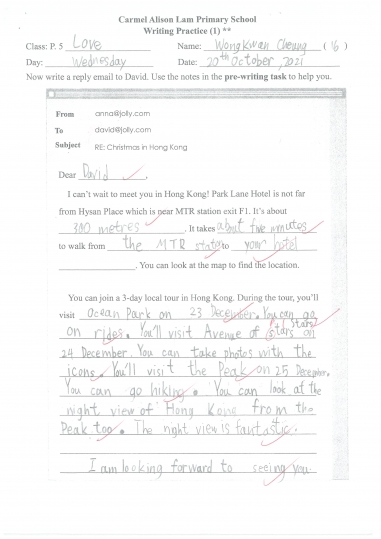 Carmel Alison Lam Primary School
Writing Practice (1) **
Class: P. 5 Love Name: Wong Kwan Cheung (16)
Day: Wednesday Date: 20th October, 2021
Now write a reply email to David. Use the notes in the pre-writing task to help you.
From anna@jolly.com
To david@jolly.com
Subject RE: Christmas in Hong Kong
Dear David
I can't wait to meet you in Hong Kong! Park Lane Hotel is not far
from Hysan Place which is near MTR station exit F1. It's about
300 metres. It takes about five minutes
to walk from the MTR to your hotel
. You can look at the map to find the location.
You can join a 3-day local tour in Hong Kong. During the tour, you'll
visit Ocean Park on 23 December. You can go
on rides. You'll visit Avenue of Stars on
24 December. You can take photos with the
icons. You'll visit the Peak on 25 December.
You can go hiking. You can look at the
night view of Hong Kong from the
Peak too. The night view is fantastic.
I am looking forward to seeing you.